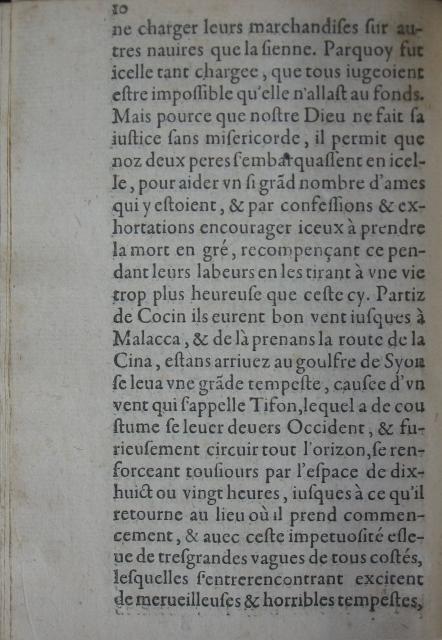 10
ne charger leurs marchandiſes ſur au-
tres nauires que la ſienne. Parquoy fut
icelle tant chargee, que tous iugeoient
eſtre impoſſible qu'elle n'allaſt au fonds.
Mais pource que noſtre Dieu ne fait ſa
iuſtice ſans miſericorde, il permit que
noz deux peres ſ'embarquaſſent en icel-
le, pour aider vn ſi grãd nombre d'ames
qui y eſtoient, & par confeſſions & ex-
hortations encourager iceux à prendre
la mort en gré, recompençant ce pen-
dant leurs labeurs en les tirant à vne vie
trop plus heureuſe que ceſte cy. Partiz
de Cocin ils eurent bon vent iuſques à
Malacca, & de là prenans la route de la
Cina, eſtans arriuez au goulfre de Syon
ſe leua vne grãde tempeſte, cauſee d'vn
vent qui ſ'appelle Tifon, lequel a de cou
ſtume ſe leuer deuers Occident, & fu-
rieuſement circuir tout l'orizon, ſe ren-
forceant touſiours par l'eſpace de dix-
huict ou vingt heures, iuſques à ce qu'il
retourne au lieu où il prend commen-
cement, & auec ceſte impetuoſité eſle-
ue de treſgrandes vagues de tous coſtés,
leſquelles ſ'entrerencontrant excitent
de merueilleuſes & horribles tempeſtes,